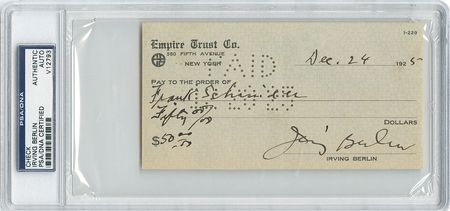 1-220
Empire Trust Co.
580 FIFTH AVENUE
NEW YORK
PAID
Dec. 24 1925
PAY TO THE ORDER OF
Frank
Fifty 00/00
DOLLARS
$50.00
Irving Berlin
IRVING BERLIN
PSA/DNA
CHECK
IRVING BERLIN
PSA/DNA CERTIFIED
AUTHENTIC
AUTO
V12793